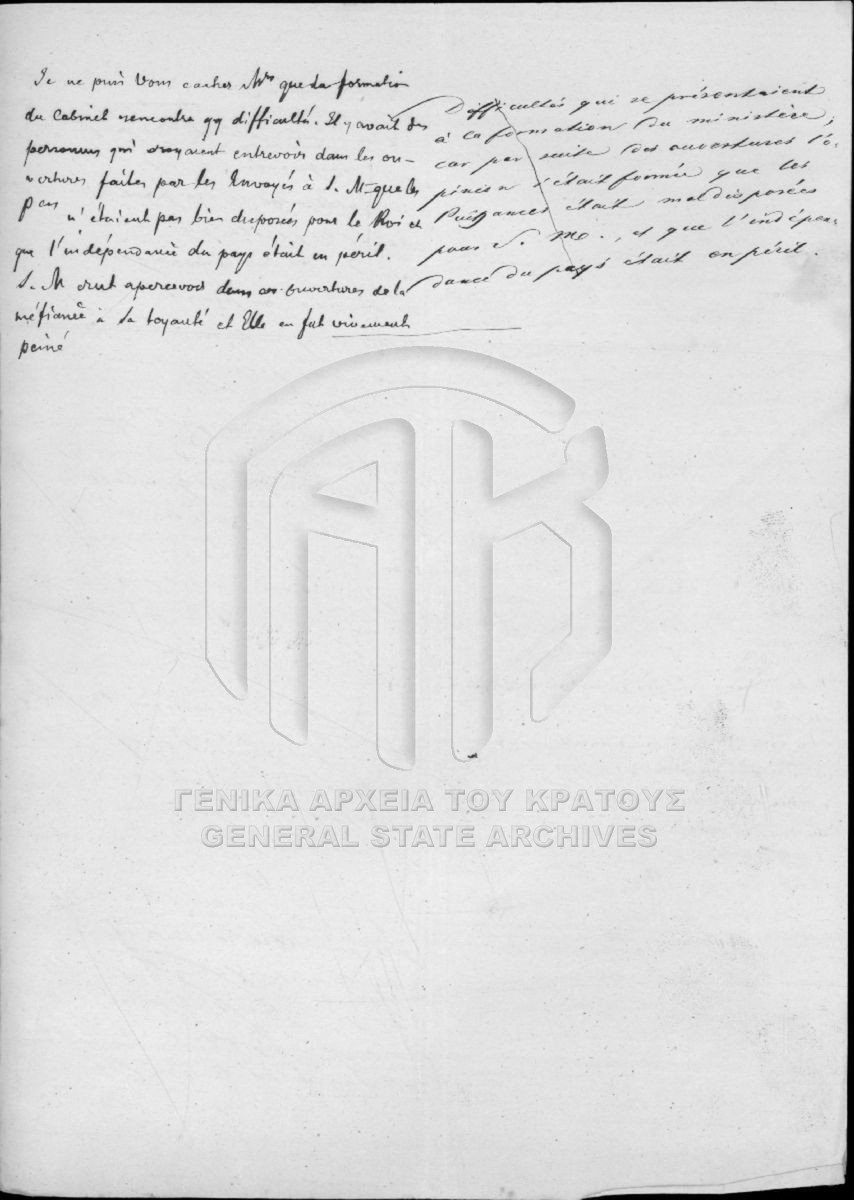 Je ne puis Vous cacher Mrs que la formation
du Cabinet rencontra qq difficultés. Il y avait des
personnes qui croyaient entrevoir dans les ou-
vertures faites par les Envoyés à S. M. que les
Pces n'étaient pas bien disposées pour le Roi et
que l'indépendance du pays était en péril.
S. M crut apercevoir dans ces ouvertures de la
méfiance à Sa loyauté et Elle en fut vivement
peiné
Difficultés qui se présentaient
à la formation du ministère;
car par suite des ouvertures l'o-
pinion s'était formée que les
Puissances était mal disposées
pour S. M., et que l'indépen-
dance du pays était en péril.
ΓΕΝΙΚΑ ΑΡΧΕΙΑ ΤΟΥ ΚΡΑΤΟΥΣ
GENERAL STATE ARCHIVES